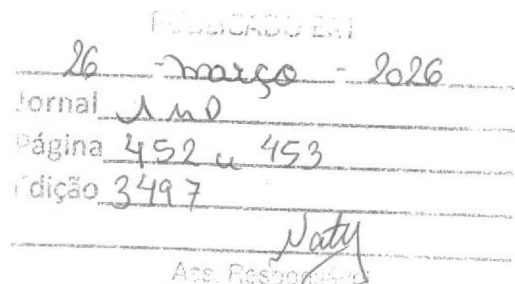 PUBLICADO EM
26 - março - 2026
Jornal
Página 452 e 453
Edição 3497
Naty
Ass. Responsável